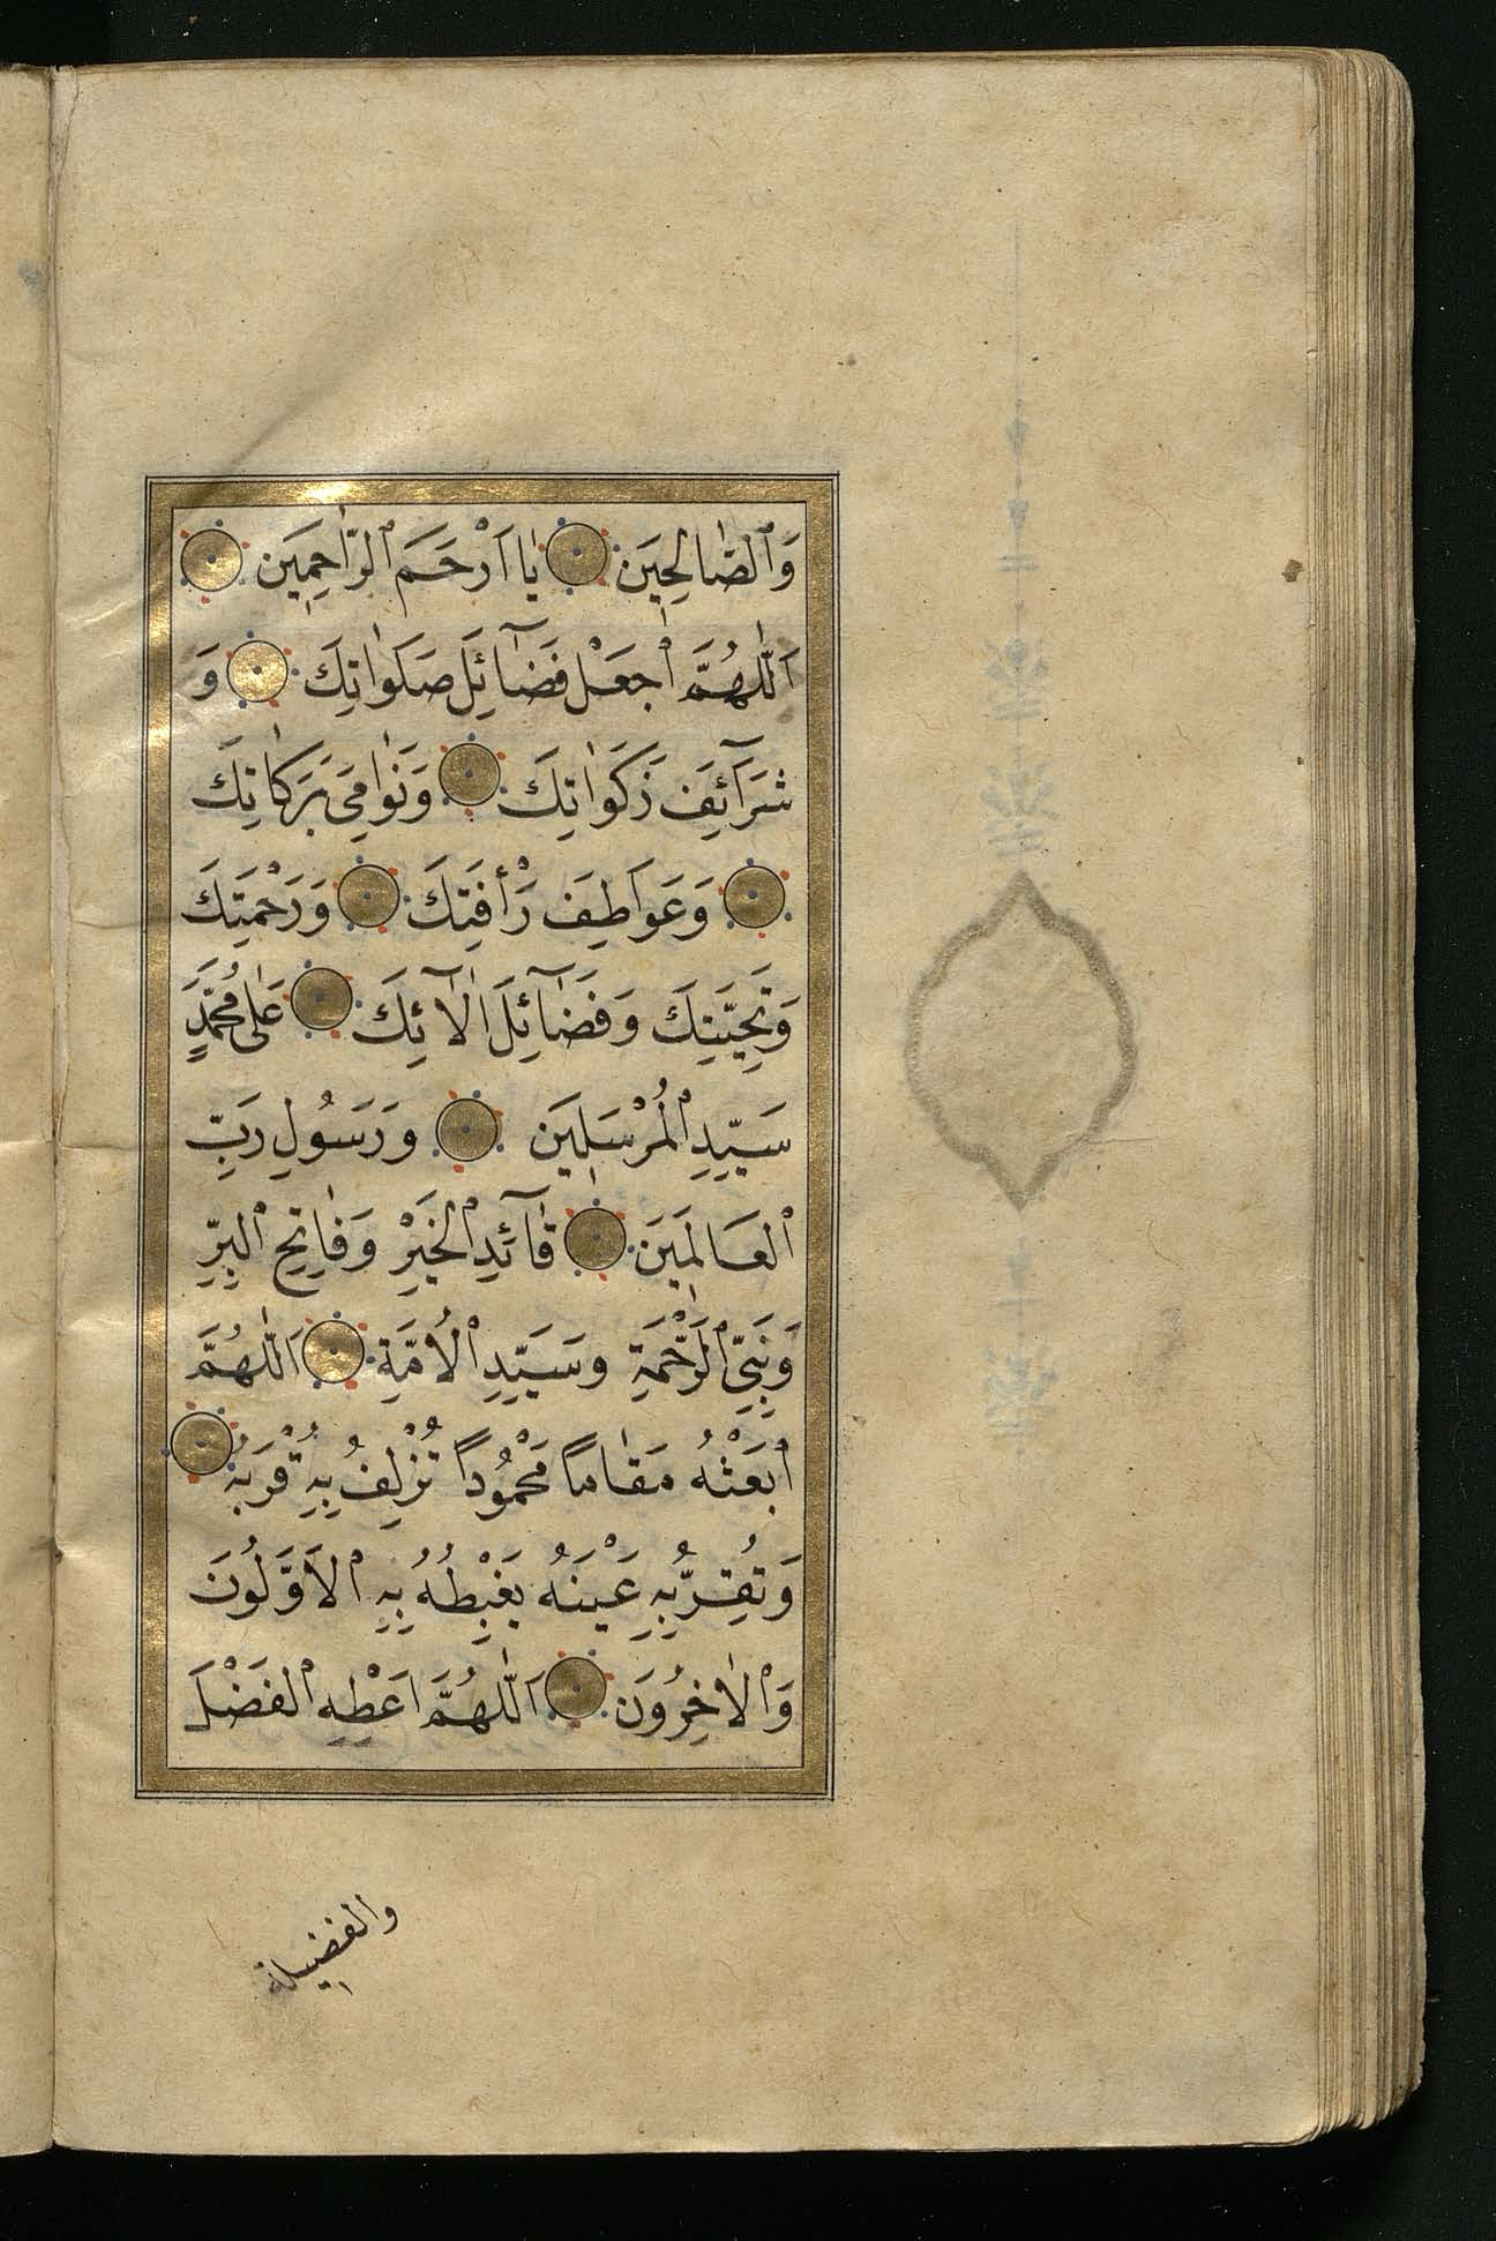 وَٱلصّٰالِحِيَن يٰا اَرْحَمَ ٱلرّٰاحِمِيَن
اَللّٰهُمَّ ٱجْعَلْ فَضٰٓائِلَ صَلَوٰاتِكَ وَ
شَرَآئِفَ زَكَوٰاتِكَ وَنَوٰامِىَ بَرَكٰاتِكَ
وَعَوَاطِفَ رَأْفَتِكَ وَرَحْمَتِكَ
وَتَحِيَّتِكَ وَفَضٰٓائِلَ اٰلٓائِكَ عَلٰى مُحَمَّدٍ
سَيِّدِ ٱلْمُرْسَلِيَن وَرَسُولِ رَبِّ
ٱلعَالَمِيَن قٰٓائِدِ ٱلْخَيْرِ وَفٰاتِحِ ٱلْبِرِّ
وَنَبِىِّ ٱلرَّحْمَةِ وسَيِّدِ ٱلْاُمَّةِ اَللّٰهُمَّ
ٱبْعَثْهُ مَقٰاماً مَحْمُوداً تُزْلِفُ بِهِ قُرْبَهُ
وَتُقِرُّ بِهِ عَيْنَهُ يَغْبِطُهُ بِهِ ٱلْاَوَّلُونَ
وَٱلْاٰخِرُونَ اَللّٰهُمَّ اَعْطِهِ ٱلفَضْلَ
والفضيلة